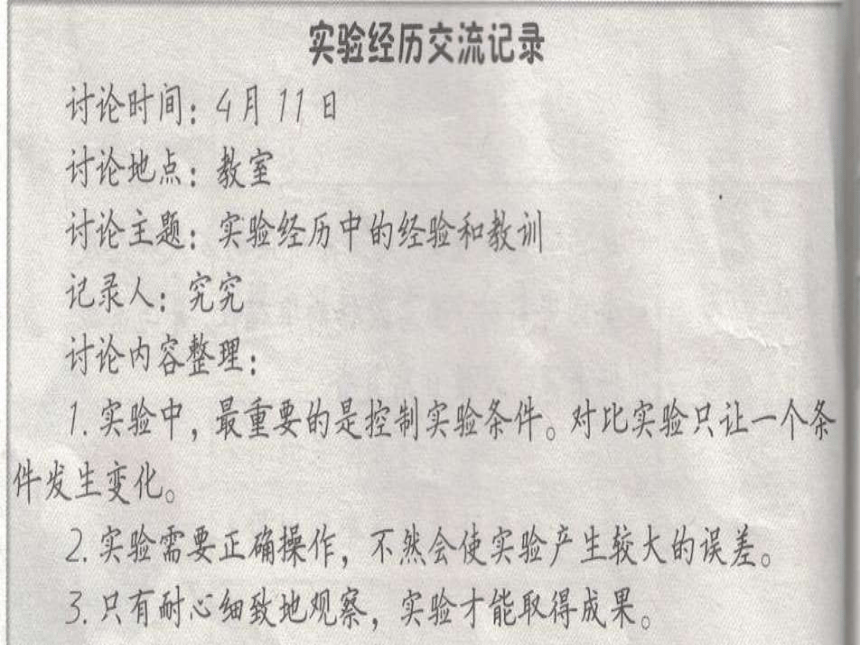 实验经历交流记录
讨论时间：4月11日
讨论地点：教室
讨论主题：实验经历中的经验和教训
记录人：究究
讨论内容整理：
1.实验中，最重要的是控制实验条件。对比实验只让一个条
件发生变化。
2.实验需要正确操作，不然会使实验产生较大的误差。
3.只有耐心细致地观察，实验才能取得成果。